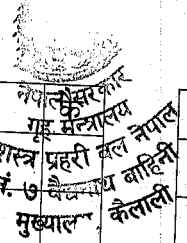 नेपाल सरकार
गृह मन्त्रालय
शस्त्र प्रहरी बल नेपाल
नं. ७ वैद्यनाथ बाहिनी
मुख्यालय कैलाली